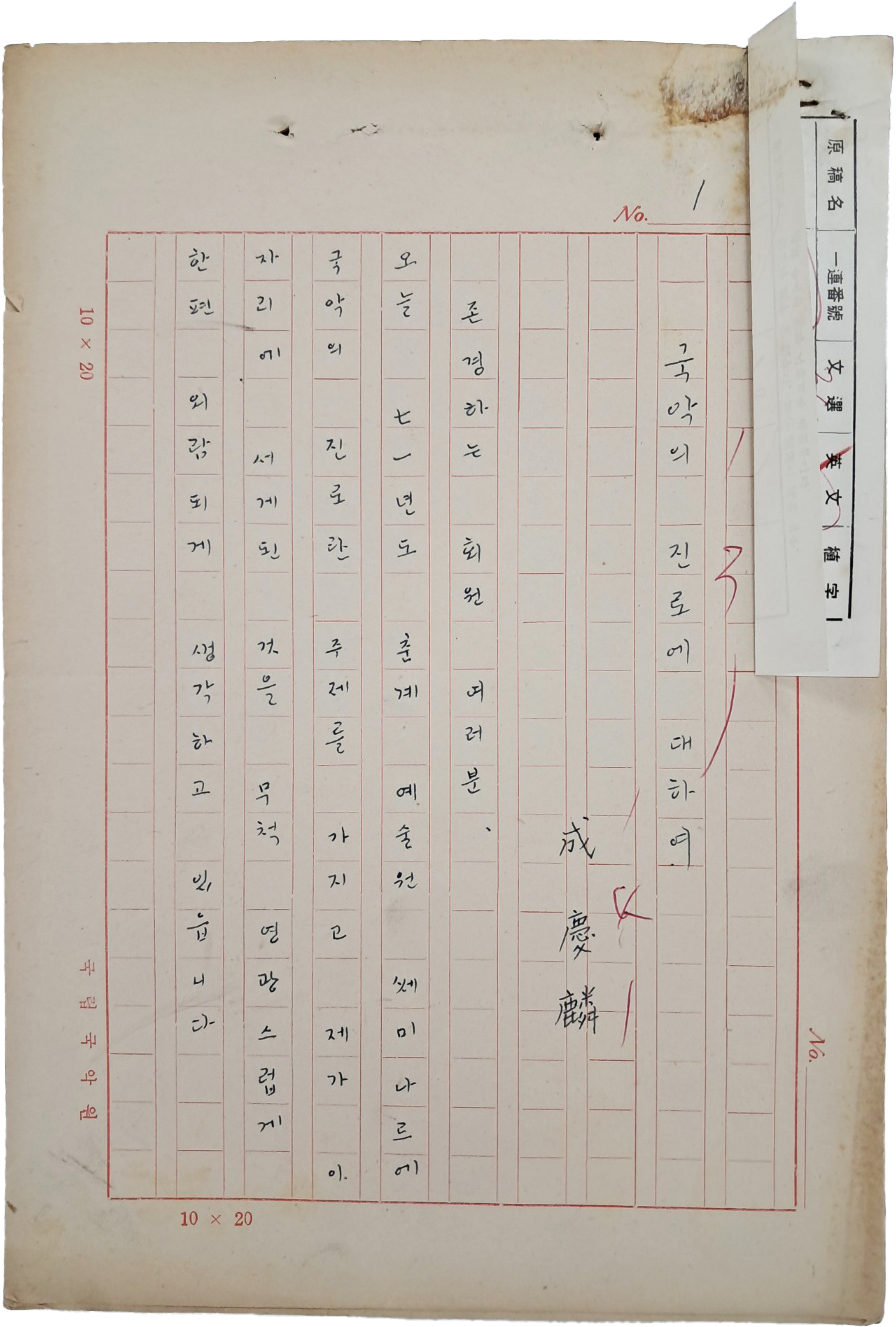 原稿名 一連番號 文選 英文 植字
No. 1
국악의 진로에 대하여
成慶麟
존경하는 회원 여러분.
오늘 七一년도 춘계 예술원 쎄미나르에
국악의 진로란 주제를 가지고 제가 이.
자리에 서게된 것을 무척 영광스럽게
한편 외람되게 생각하고 있읍니다
10 × 20
국립국악원
10 × 20
No.